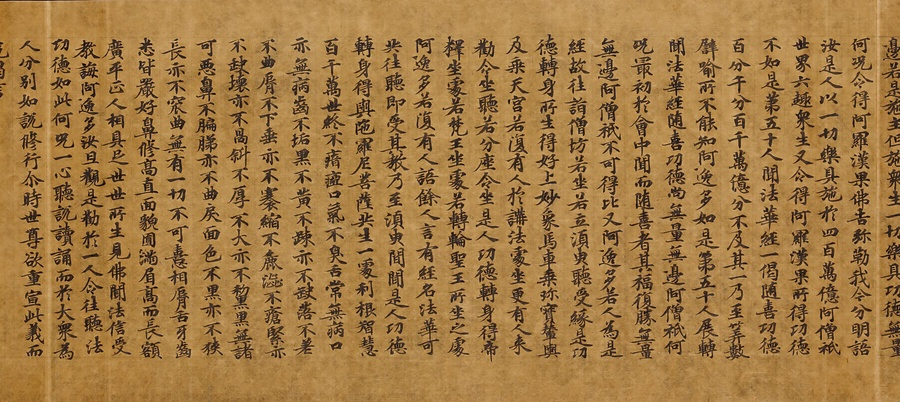 邊若是施主但施衆生一切樂具功德無量
何況令得阿羅漢果佛告弥勒我今分明語
汝是人以一切樂具施於四百萬億阿僧祇
世界六趣衆生又令得阿羅漢果所得功德
不如是第五十人聞法華經一偈随喜功德
百分千分百千萬億分不及其一乃至筭數
譬喻所不能知阿逸多如是第五十人展轉
聞法華經随喜功德尚無量無邊阿僧祇何
況最初於會中聞而随喜者其福復勝無量
無邊阿僧祇不可得比又阿逸多若人為是
經故往詣僧坊若坐若立須臾聽受緣是功
德轉身所生得好上妙象馬車乗珎寶輦輿
及乗天宮若復有人於講法處坐更有人来
勸令坐聽若分座令坐是人功德轉身得帝
釋坐處若梵王坐處若轉輪聖王所坐之處
阿逸多若復有人語餘人言有經名法華可
共往聽即受其教乃至須臾間聞是人功德
轉身得與陁羅尼菩薩共生一處利根智慧
百千萬世終不瘖瘂口氣不臭舌常無病口
亦無病齒不垢黒不黄不踈亦不缺落不差
不曲脣不下垂亦不褰縮不麁澁不瘡緊亦
不缺壞亦不喎斜不厚不大亦不黧黒無諸
可惡鼻不膈䏲亦不曲戾面色不黒亦不狹
長亦不窊曲無有一切不可喜相脣舌牙齒
悉皆嚴好鼻修高直面貌圓滿眉高而長額
廣平正人相具足世世所生見佛聞法信受
教誨阿逸多汝且觀是勸於一人令往聽法
功德如此何況一心聽說讀誦而於大衆為
人分别如說修行尒時世尊欲重宣此義而